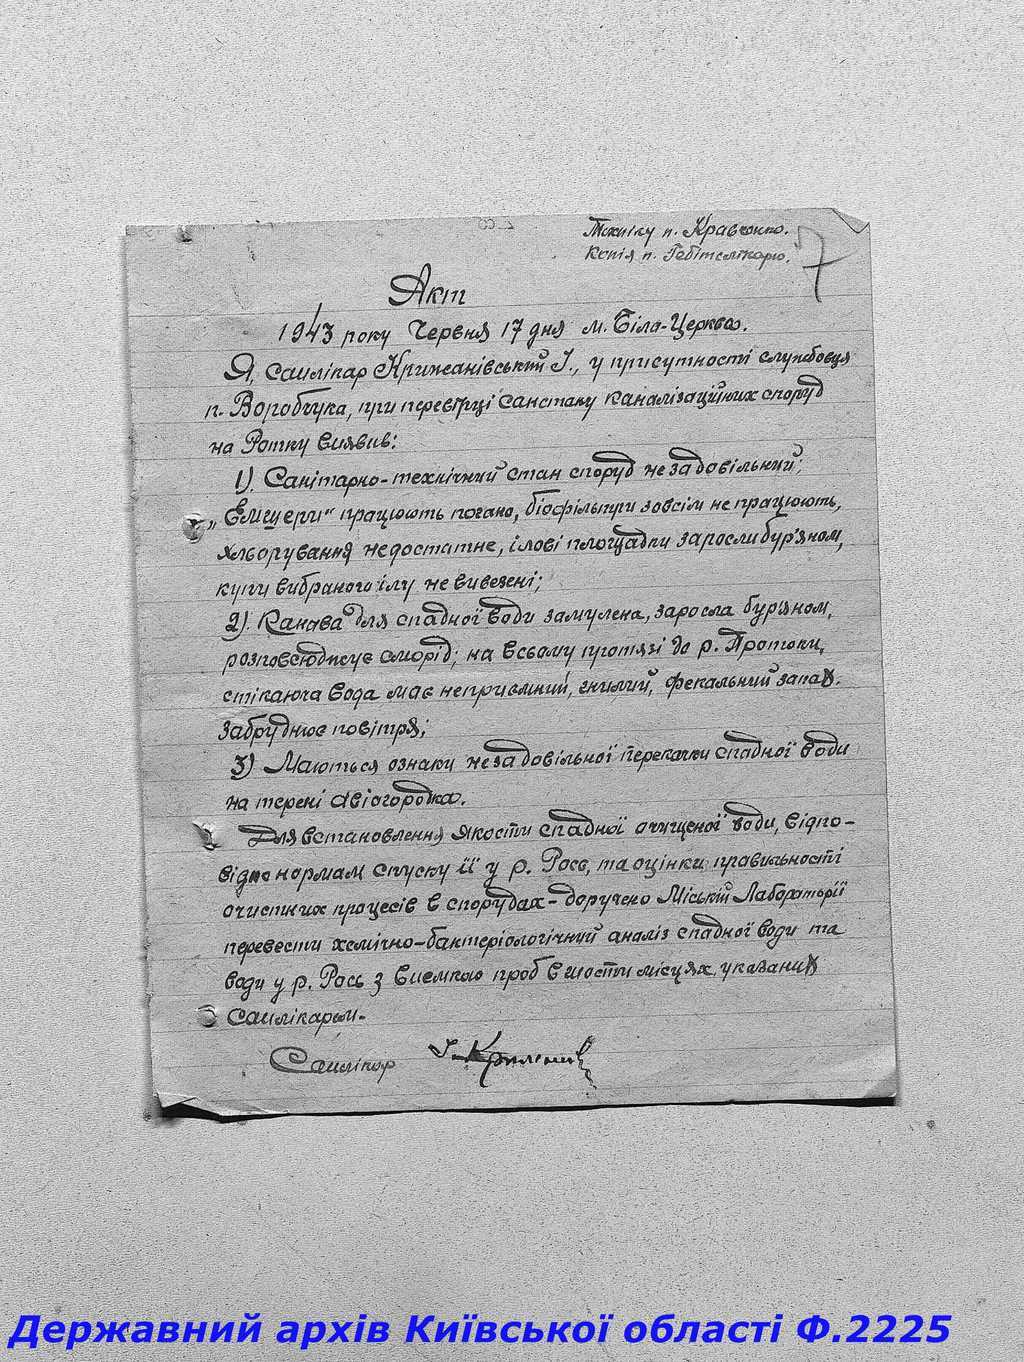 Техніку п. Кравченко.
Копія п. Гебітслікарю.
7
Акт
1943 року Червня 17 дня м. Біла-Церква.
Я, санлікар Крижанівський І., у присутності службовця
п. Воробчука, при перевірці санстану каналізаційних споруд
на Ротку виявив:
1). Санітарно-технічний стан споруд незадовільний;
„Емщери" працюють погано, біофільтри зовсім не працюють,
хльорування недостатнє, ілові площадки заросли бур'яном,
купи вибраного ілу не вивезені;
2). Канава для спадної води замулена, заросла бур'яном,
розповсюджує сморід; на всьому протязі до р. Протоки,
стікаюча вода має неприємний, гнилий, фекальний запах.
забруднює повітря;
3) Маються ознаки незадовільної перекачки спадної води
на терені авіагородка.
Для встановлення якости спадної очищеної води, відпо-
відно нормам спуску її у р. Рось, та оцінки правильності
очистних процесів в спорудах - доручено Міській Лабораторії
перевести хемічно-бактеріологічний аналіз спадної води та
води у р. Рось з виємкою проб в шости місцях, указаних
Санлікарем.
Санлікар
Державний архів Київської області Ф.2225